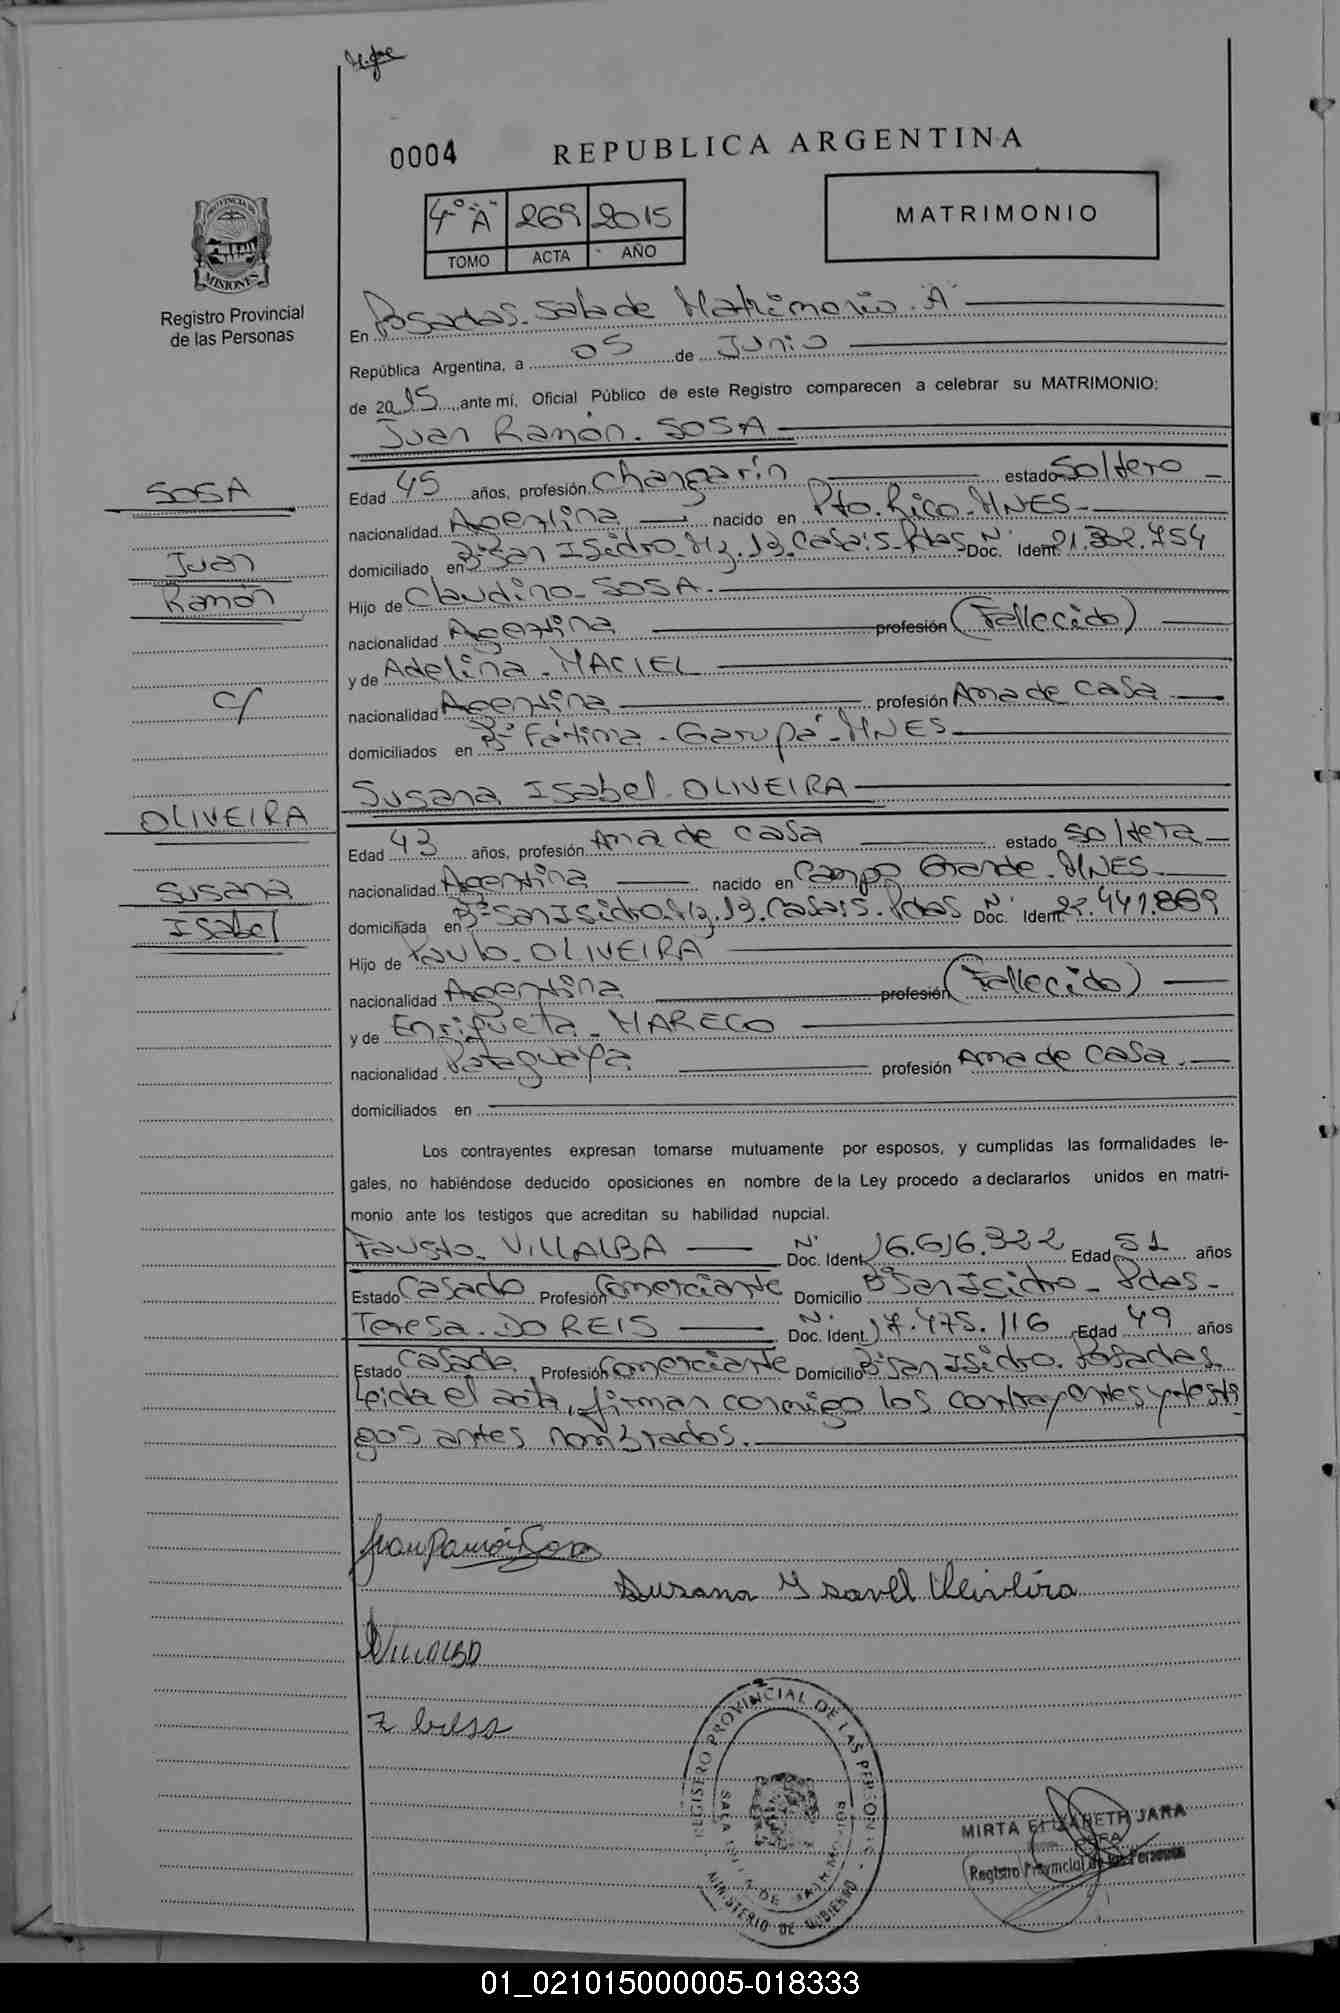 0004 REPUBLICA ARGENTINA
4º "A" 269 2015
TOMO ACTA AÑO
MATRIMONIO
PROVINCIA DE MISIONES
Registro Provincial
de las Personas
En Posadas. Sala de Matrimonio "A"
República Argentina, a 05 de Junio
de 2015, ante mí, Oficial Público de este Registro comparecen a celebrar su MATRIMONIO:
Juan Ramón. SOSA
Edad 45 años, profesión Changarín estado Soltero
nacionalidad Argentina nacido en Pto. Rico - MNES
domiciliado en Bº San Isidro. Mz. 13. Casa: 5. Pdas Doc. Ident. Nº 21.302.754
Hijo de Claudino - SOSA.
nacionalidad Argentina profesión (Fallecido)
y de Adelina - MACIEL
nacionalidad Argentina profesión Ama de casa
domiciliados en Bº Fátima - Garupá - MNES
Susana Isabel. OLIVEIRA
Edad 43 años, profesión Ama de casa estado Soltera
nacionalidad Argentina nacido en Campo Grande - MNES
domiciliada en Bº San Isidro. Mz. 13. Casa: 5. Pdas Doc. Ident. Nº
Hijo de Paulo - OLIVEIRA
nacionalidad Argentina profesión (Fallecido)
y de Enriqueta - MARECO
nacionalidad Paraguaya profesión Ama de casa.
domiciliados en
Los contrayentes expresan tomarse mutuamente por esposos, y cumplidas las formalidades le-
gales, no habiéndose deducido oposiciones en nombre de la Ley procedo a declararlos unidos en matri-
monio ante los testigos que acreditan su habilidad nupcial.
Fausto. VILLALBA Doc. Ident. Nº 16.616.322 Edad 51 años
Estado Casado Profesión Comerciante Domicilio Bº San Isidro - Pdas -
Teresa. DO REIS Doc. Ident. Nº 17.475.116 Edad 49 años
Estado Casada Profesión Comerciante Domicilio Bº San Isidro. Posadas
Leida el acta, firman conmigo los contrayentes y testi
gos antes nombrados.
SOSA
Juan
Ramón
c/
OLIVEIRA
Susana
Isabel
Juan Ramón Sosa
Susana Ysavel
Villalba
REGISTRO PROVINCIAL DE LAS PERSONAS
MINISTERIO DE GOBIERNO
MIRTA ELIZABETH JARA
Registro Provincial de las Personas
01_021015000005-018333